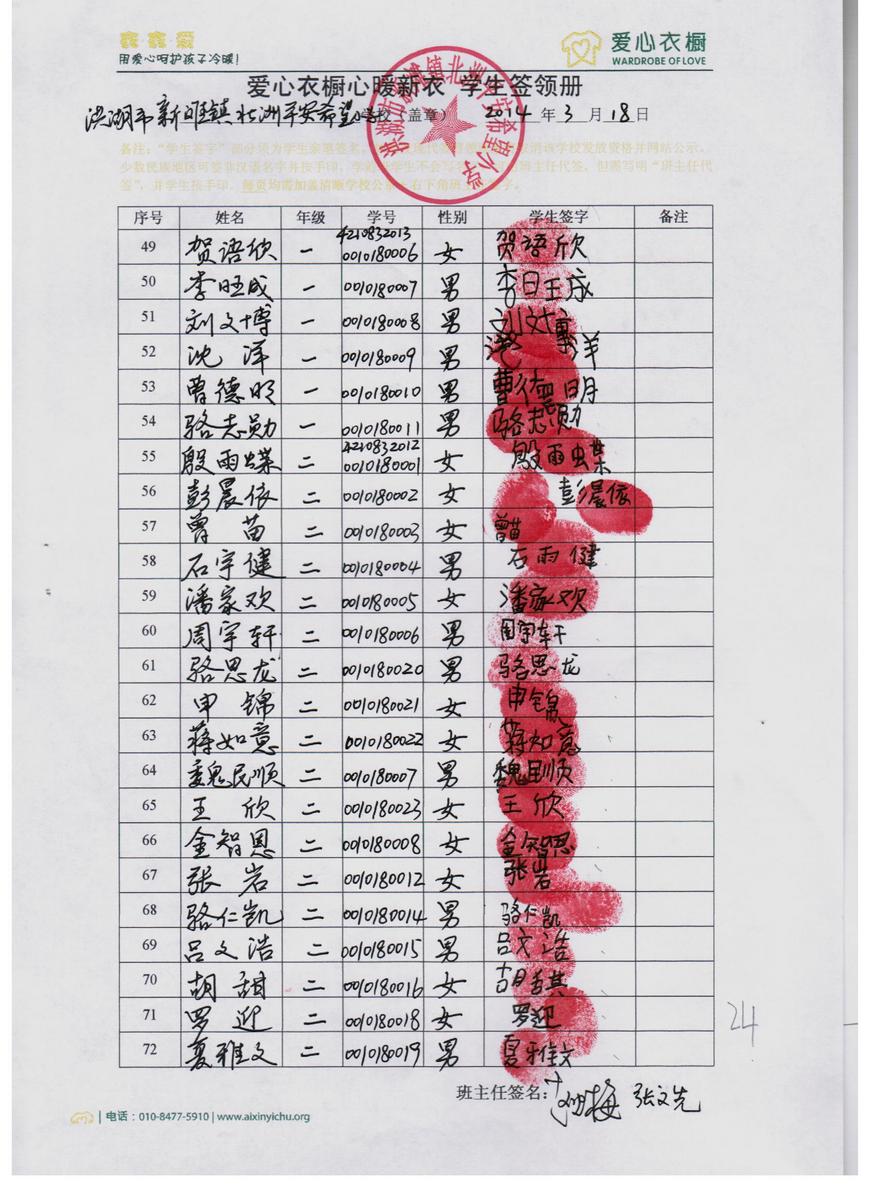 鑫鑫爱
用爱心呵护孩子冷暖!
爱心衣橱
WARDROBE OF LOVE
爱心衣橱心暖新衣 学生签领册
洪湖市新堤镇北洲平安希望小学校（盖章） 2014年3月18日
备注：“学生签字”部分须为学生亲笔签名，
少数民族地区可签非汉语名字并按手印，
签”，并学生按手印。
序号 姓名 年级 学号 性别 学生签字 备注
49 贺语欣 一 4210832013 0010180006 女 贺语欣
50 李旺成 一 0010180007 男 李旺成
51 刘文博 一 0010180008 男 刘文博
52 沈洋 一 0010180009 男 沈洋
53 曹德明 一 0010180010 男 曹德明
54 骆志勋 一 0010180011 男 骆志勋
55 殷雨蝶 二 4210832012 0010180001 女 殷雨蝶
56 彭晨依 二 0010180002 女 彭晨依
57 曾苗 二 0010180003 女 曾苗
58 石宇健 二 0010180004 男 石雨健
59 潘家欢 二 0010180005 女 潘家欢
60 周宇轩 二 0010180006 男 周宇轩
61 骆思龙 二 0010180020 男 骆思龙
62 申锦 二 0010180021 女 申锦
63 蒋如意 二 0010180022 女 蒋如意
64 魏民顺 二 0010180007 男 魏民顺
65 王欣 二 0010180023 女 王欣
66 金智恩 二 0010180008 女 金智恩
67 张岩 二 0010180012 女 张岩
68 骆仁凯 二 0010180014 男 骆仁凯
69 吕文浩 二 0010180015 男 吕文浩
70 胡甜 二 0010180016 女
71 罗迎 二 0010180018 女 罗迎
72 夏雅文 二 0010180019 男 夏雅文
24
班主任签名： 张文先
电话：010-8477-5910 | www.aixinyichu.org